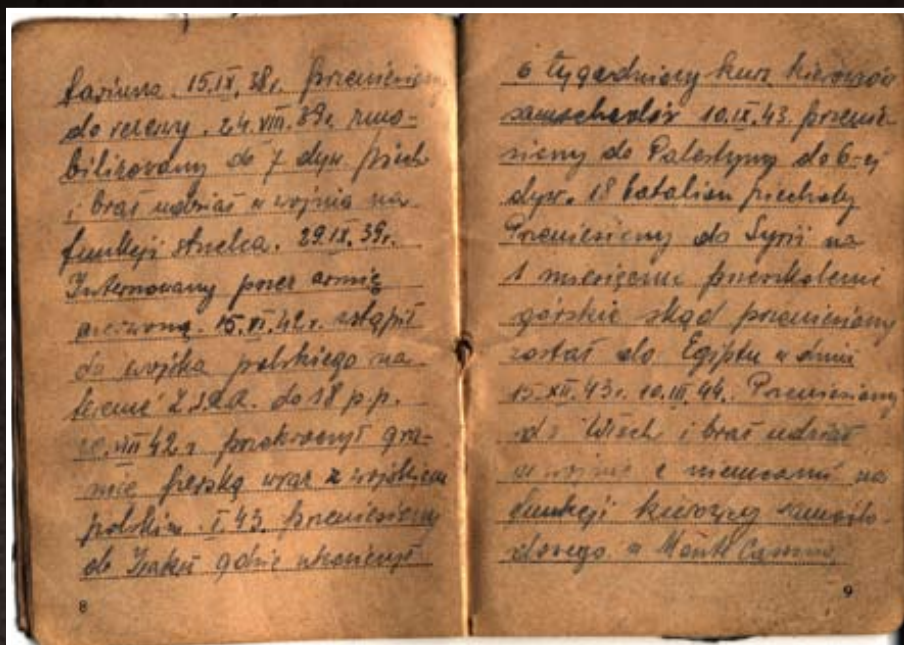 15.IX.38r. przeniesiony
do rezerwy. 24.VIII.39r. zmo-
bilizowany do 7 dyw. piech
i brał udział w wojnie na
funkcji strzelca. 29.IX.39r.
Internowany przez armię
czerwoną. 15.VI.42r. wstąpił
do wojska polskiego na
terenie Z.S.R.R. do 18 p.p.
VIII 42 r przekroczył gra-
nicę perską wraz z wojskiem
polskim. I 43. przeniesiony
do Iraku gdzie ukończył
8
6 tygodniowy kurs kierowców
samochodów 10.IX.43. przenie-
siony do Palestyny do 6-ej
dyw. 18 batalion piechoty
Przeniesiony do Syrii na
1 miesięczne przeszkolenie
górskie skąd przeniesiony
został do Egiptu w dniu
15.XII.43r. 10.III.44. Przeniesiony
do Włoch i brał udział
w wojnie z niemcami na
funkcji kierowcy samocho-
dowego w Monte Cassino
9